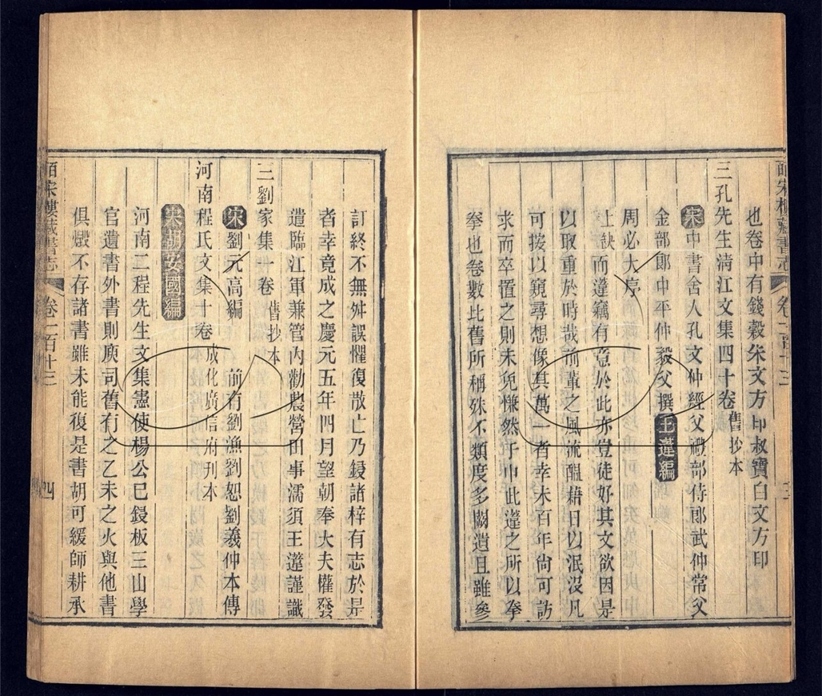 也卷中有錢穀朱文方印叔寶白文方印
三孔先生淸江文集四十卷 舊抄本
宋中書舍人孔文仲經父禮部侍郎武仲常父
金部郎中平仲毅父撰王薳編
周必大序
上訣而薳竊有意於此亦豈徒好其文欲因是
以取重於時哉前輩之風流醞藉日以泯沒凡
可按以窺尋想像其萬一者幸未百年尙可訪
求而卒置之則未免慊然于中此薳之所以拳
拳也卷數比舊所稱殊不類度多闕遺且雖參
皕宋樓藏書志 卷一百十三 三
訂終不無舛誤懼復散亡乃鋟諸梓有志於是
者幸竟成之慶元五年四月望朝奉大夫權發
遣臨江軍兼管內勸農營田事濡須王薳謹識
三劉家集一卷 舊抄本
宋劉元高編 前有劉渙劉恕劉羲仲本傳
河南程氏文集十卷 成化廣信府刊本
宋胡安國編
河南二程先生文集憲使楊公已鋟板三山學
官遺書外書則庾司舊有之乙未之火與他書
俱燬不存諸書雖未能復是書胡可緩師耕承
皕宋樓藏書志 卷一百十三 四